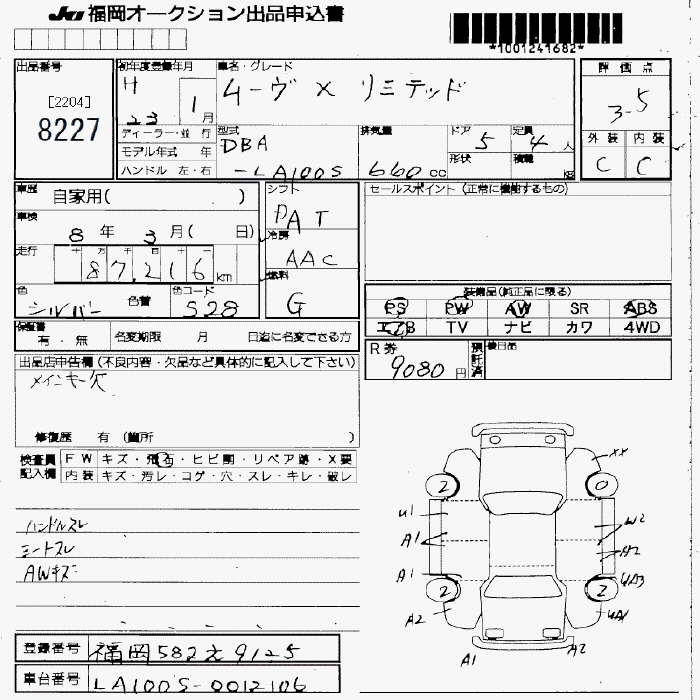 JU 福岡オークション出品申込書
*1001241682*
出品番号
[2204]
8227
初年度登録年月
H 23 1月
車名・グレード
ムーヴ X リミテッド
評価点
3-5
ディーラー・並行
モデル年式 年
ハンドル 左・右
型式
DBA
-LA100S
排気量
660cc
ドア 5
形状
定員 4人
積載 kg
外装 内装
C C
車歴
自家用( )
シフト
DAT
セールスポイント (正常に機能するもの)
車検
8年 3月( 日)
冷房
AAC
走行
十 万 千 百 十 一
87,216km
燃料
G
色
シルバー 色替
色コード
S28
装備品(純正品に限る)
PS PW AW SR ABS
エアB TV ナビ カワ 4WD
保証書
有・無
名変期限 月 日迄に名変できる方
R券
9080円
預託済
後日品
出品店申告欄(不良内容・欠品など具体的に記入して下さい)
メインキー欠
修復歴 有 (箇所 )
検査員記入欄
FW キズ・飛石・ヒビ割・リペア跡・X要
内装 キズ・汚レ・コゲ・穴・スレ・キレ・破レ
ハンドルスレ
シートスレ
AWキズ
XX
2 0
U1
A1
W2
A2
A1
UA3
2 2
A2
UA1
A1 A2
登録番号 福岡582え9125
車台番号 LA100S-0012106